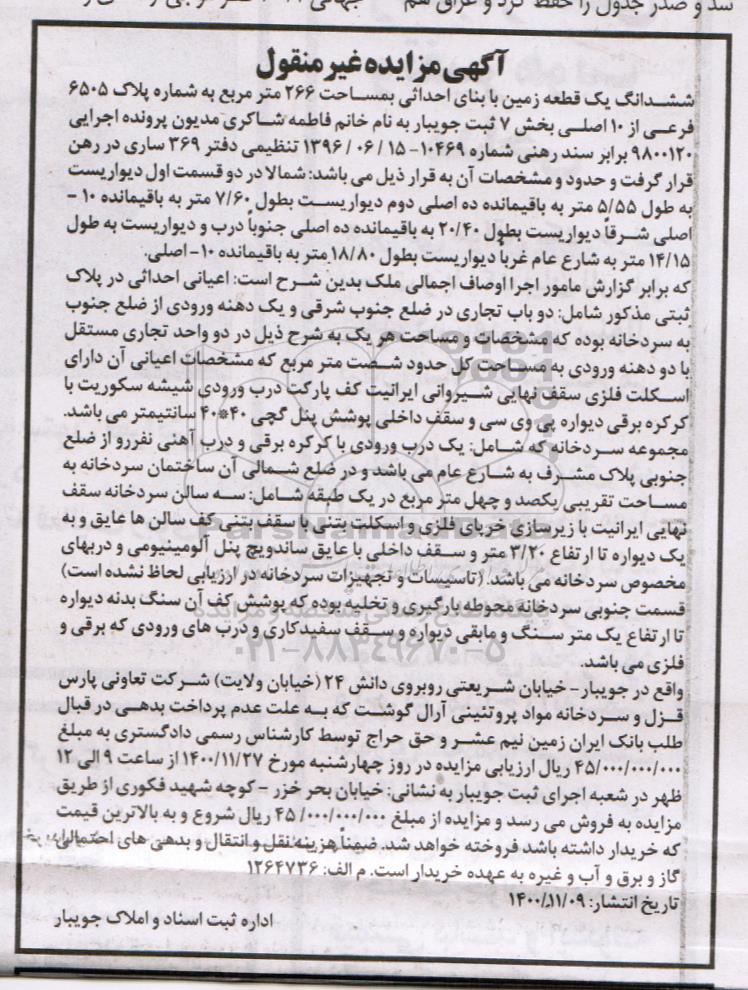 سد و صدر جدول را حفظ کرد و عراق هم جهانی
آگهی مزایده غیر منقول
ششدانگ یک قطعه زمین با بنای احداثی بمساحت ۲۶۶ متر مربع به شماره پلاک ۶۵۰۵
فرعی از ۱۰ اصلی بخش ۷ ثبت جویبار به نام خانم فاطمه شاکری مدیون پرونده اجرایی
۹۸۰۰۱۲۰ برابر سند رهنی شماره ۱۰۴۶۹- ۱۵ / ۰۶ / ۱۳۹۶ تنظیمی دفتر ۳۶۹ ساری در رهن
قرار گرفت و حدود و مشخصات آن به قرار ذیل می باشد: شمالا در دو قسمت اول دیواریست
به طول ۵/۵۵ متر به باقیمانده ده اصلی دوم دیواریست بطول ۷/۶۰ متر به باقیمانده ۱۰ -
اصلی شرقاً دیواریست بطول ۲۰/۴۰ به باقیمانده ده اصلی جنوباً درب و دیواریست به طول
۱۴/۱۵ متر به شارع عام غرباً دیواریست بطول ۱۸/۸۰ متر به باقیمانده ۱۰- اصلی.
که برابر گزارش مامور اجرا اوصاف اجمالی ملک بدین شرح است: اعیانی احداثی در پلاک
ثبتی مذکور شامل: دو باب تجاری در ضلع جنوب شرقی و یک دهنه ورودی از ضلع جنوب
به سردخانه بوده که مشخصات و مساحت هر یک به شرح ذیل در دو واحد تجاری مستقل
با دو دهنه ورودی به مساحت کل حدود شصت متر مربع که مشخصات اعیانی آن دارای
اسکلت فلزی سقف نهایی شیروانی ایرانیت کف پارکت درب ورودی شیشه سکوریت با
کرکره برقی دیواره پی وی سی و سقف داخلی پوشش پنل گچی ۴۰*۴۰ سانتیمتر می باشد.
مجموعه سردخانه که شامل: یک درب ورودی با کرکره برقی و درب آهنی نفررو از ضلع
جنوبی پلاک مشرف به شارع عام می باشد و در ضلع شمالی آن ساختمان سردخانه به
مساحت تقریبی یکصد و چهل متر مربع در یک طبقه شامل: سه سالن سردخانه سقف
نهایی ایرانیت با زیرسازی خرپای فلزی و اسکلت بتنی با سقف بتنی کف سالن ها عایق و به
یک دیواره تا ارتفاع ۳/۲۰ متر و سقف داخلی با عایق ساندویچ پنل آلومینیومی و دربهای
مخصوص سردخانه می باشد. (تاسیسات و تجهیزات سردخانه در ارزیابی لحاظ نشده است)
قسمت جنوبی سردخانه محوطه بارگیری و تخلیه بوده که پوشش کف آن سنگ بدنه دیواره
تا ارتفاع یک متر سنگ و مابقی دیواره و سقف سفیدکاری و درب های ورودی که برقی و
فلزی می باشد.
واقع در جویبار - خیابان شریعتی روبروی دانش ۲۴ (خیابان ولایت) شرکت تعاونی پارس
قزل و سردخانه مواد پروتئینی آرال گوشت که به علت عدم پرداخت بدهی در قبال
طلب بانک ایران زمین نیم عشر و حق حراج توسط کارشناس رسمی دادگستری به مبلغ
۴۵/۰۰۰/۰۰۰/۰۰۰ ریال ارزیابی مزایده در روز چهارشنبه مورخ ۱۴۰۰/۱۱/۲۷ از ساعت ۹ الی ۱۲
ظهر در شعبه اجرای ثبت جویبار به نشانی: خیابان بحر خزر - کوچه شهید فکوری از طریق
مزایده به فروش می رسد و مزایده از مبلغ ۴۵/۰۰۰/۰۰۰/۰۰۰ ریال شروع و به بالاترین قیمت
که خریدار داشته باشد فروخته خواهد شد. ضمناً هزینه نقل و انتقال و بدهی های احتمالی
گاز و برق و آب و غیره به عهده خریدار است. م الف: ۱۲۶۴۷۳۶
تاریخ انتشار: ۱۴۰۰/۱۱/۰۹
اداره ثبت اسناد و املاک جویبار
ParsNamadData
۰۲۱-۸۸۳۴۹۶۷۰-۵